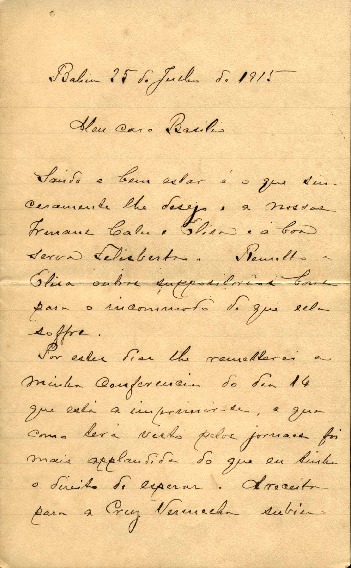 Bahia 25 de Julho de 1915
Meu caro Basilio
Saude e bem estar é o que sin-
ceramente lhe desejo e a nossas
Irmans Calu e Elisa e á boa
serva Felisberta. Remetto a
Elisa outros suppositorios bons
para o incommodo de que ella
soffre.
Por estes dias lhe remetterei a
minha conferencia do dia 14
que está a imprimir-se, a qual
como terá visto pelos jornaes foi
mais applaudida do que eu tinha
o direito de esperar. A receita
para a Cruz Vermelha subiu